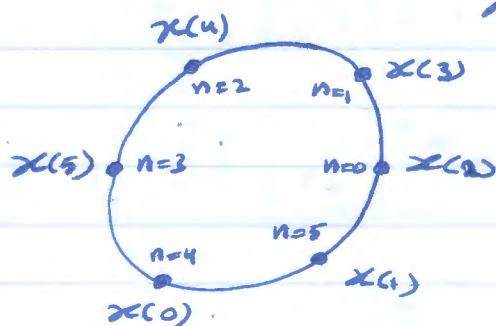 x(4)
n=2
n=1 x(3)
x(5) n=3
n=0 x(2)
n=4
n=5
x(0)
x(1)